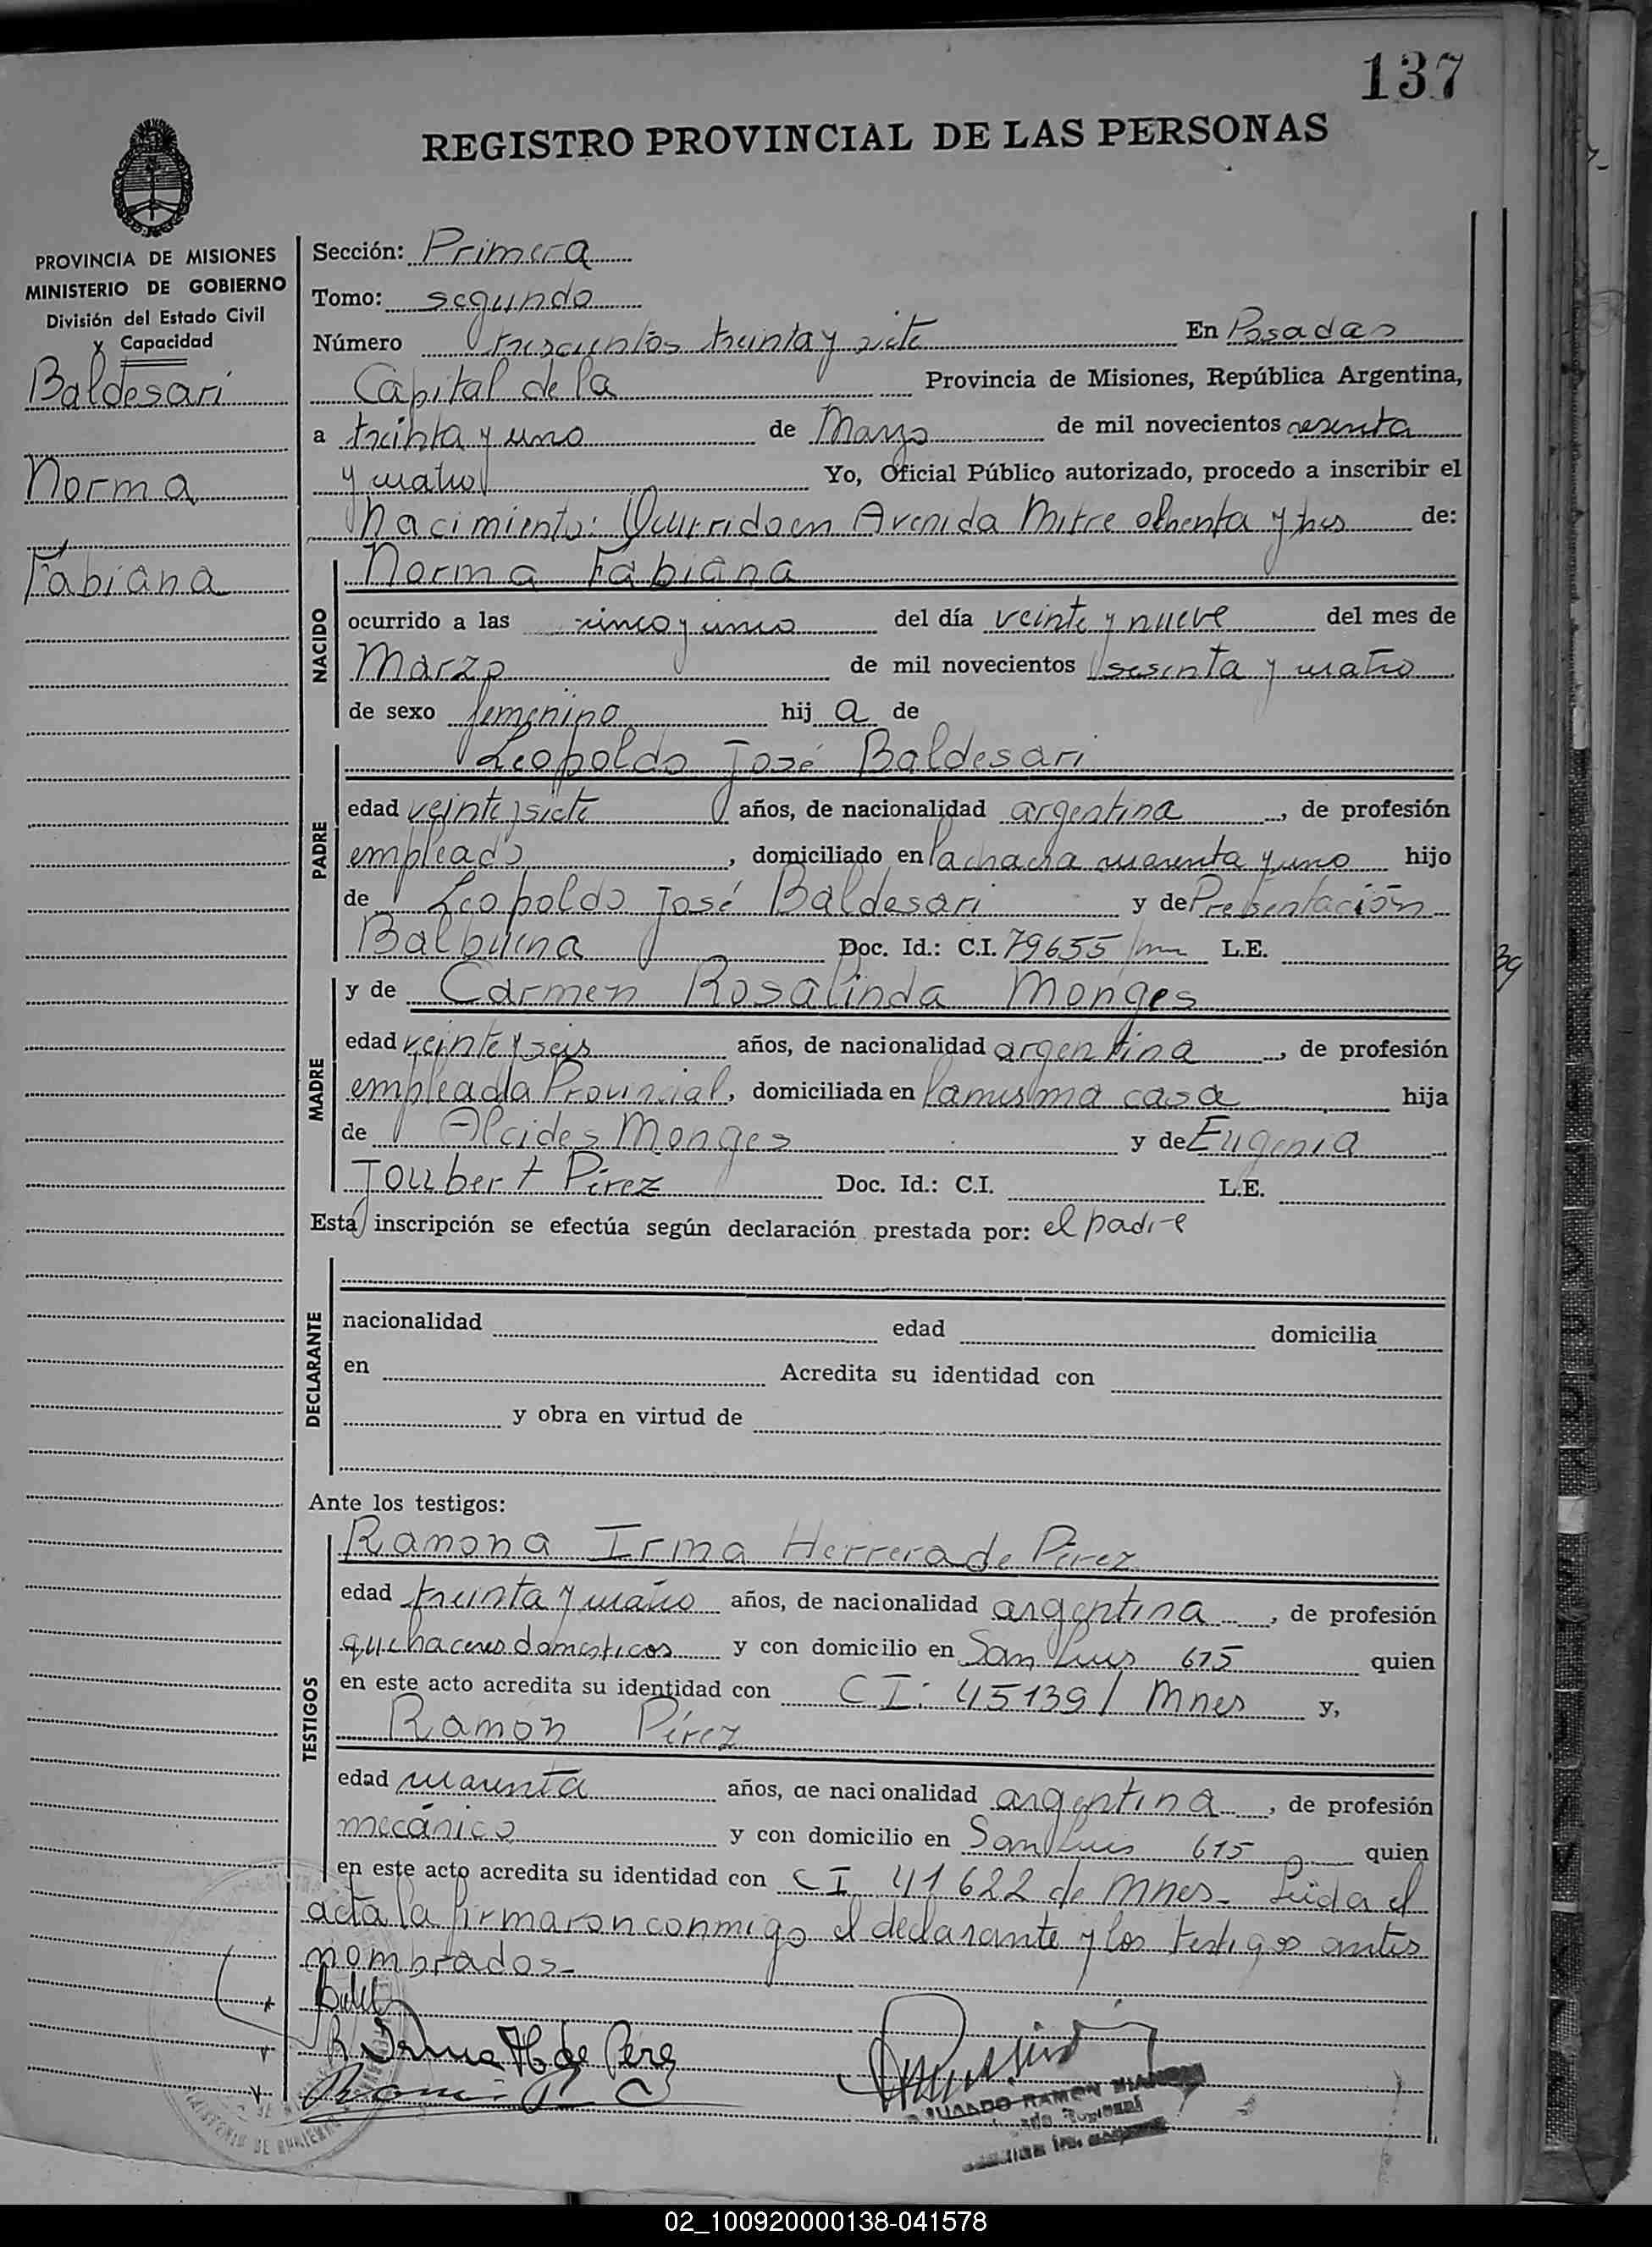 137
REGISTRO PROVINCIAL DE LAS PERSONAS
PROVINCIA DE MISIONES
MINISTERIO DE GOBIERNO
División del Estado Civil
y Capacidad
Baldesari
Norma
Fabiana
Sección: Primera
Tomo: segundo
Número trescientos treinta y siete En Posadas
Capital de la Provincia de Misiones, República Argentina,
a treinta y uno de Marzo de mil novecientos sesenta
y cuatro Yo, Oficial Público autorizado, procedo a inscribir el
Nacimiento: Ocurrido en Avenida Mitre ochenta y tres de:
NACIDO
Norma Fabiana
ocurrido a las cinco y cinco del día veinte y nueve del mes de
Marzo de mil novecientos sesenta y cuatro
de sexo femenino hij a de
PADRE
Leopoldo José Baldesari
edad veinte y siete años, de nacionalidad argentina, de profesión
empleado, domiciliado en la chacra cuarenta y uno hijo
de Leopoldo José Baldesari y de Presentación
Balbuena Doc. Id.: C.I. 79655 L.E.
MADRE
y de Carmen Rosalinda Monges
edad veinte y seis años, de nacionalidad argentina, de profesión
empleada Provincial, domiciliada en la misma casa hija
de Alcides Monges y de Eugenia
Joubert Pérez Doc. Id.: C.I. L.E.
Esta inscripción se efectúa según declaración prestada por: el padre
DECLARANTE
nacionalidad edad domicilia
en Acredita su identidad con
y obra en virtud de
Ante los testigos:
TESTIGOS
Ramona Irma Herrera de Pérez
edad treinta y cuatro años, de nacionalidad argentina, de profesión
quehaceres domesticos y con domicilio en San Luis 615 quien
en este acto acredita su identidad con CI: 45139/ Mnes y,
Ramon Pérez
edad cuarenta años, de nacionalidad argentina, de profesión
mecánico y con domicilio en San Luis 615 quien
en este acto acredita su identidad con CI 41622 de Mnes- Leida el
acta la firmaron conmigo el declarante y los testigos antes
nombrados-
R. Irma H de Perez
RAMON
02_100920000138-041578